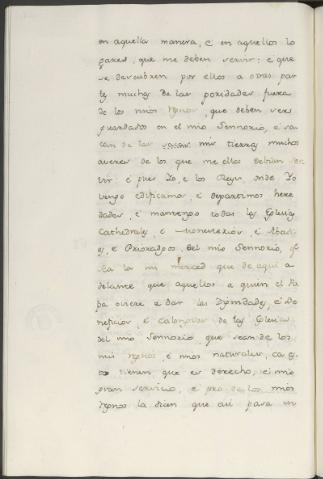 en aquella manera, e en aquellos lo
gares, que me deben servir: e que
se descubren por ellos a otras par
tes muchas de las poridades fuera
de los mios Regnos, que deben ser
guardados en el mio Sennorio, e sa
can de las mis tierras muchos
averes de los que me ellos debian ser
vir e pues Yo, e los Reys, onde Yo
vengo edificamos, e departimos here
dades, e mantengo todas las Eglesias
Cathedrales, e Monesterios, e Abadi
as, e Prioradgos del mio Sennorio,
sea la mi merced que de aqui a
delante que aquellos a quien el Pa
pa oviere a dar las Dignidades, e Be
neficios, e Calongias de las Eglesias
del mio Sennorio, que sean de los
mis Regnos, e mios naturales, ca
tienen que es derecho, e mio
gran servicio, e pro de los mios
Regnos la dicen que asi pasa en